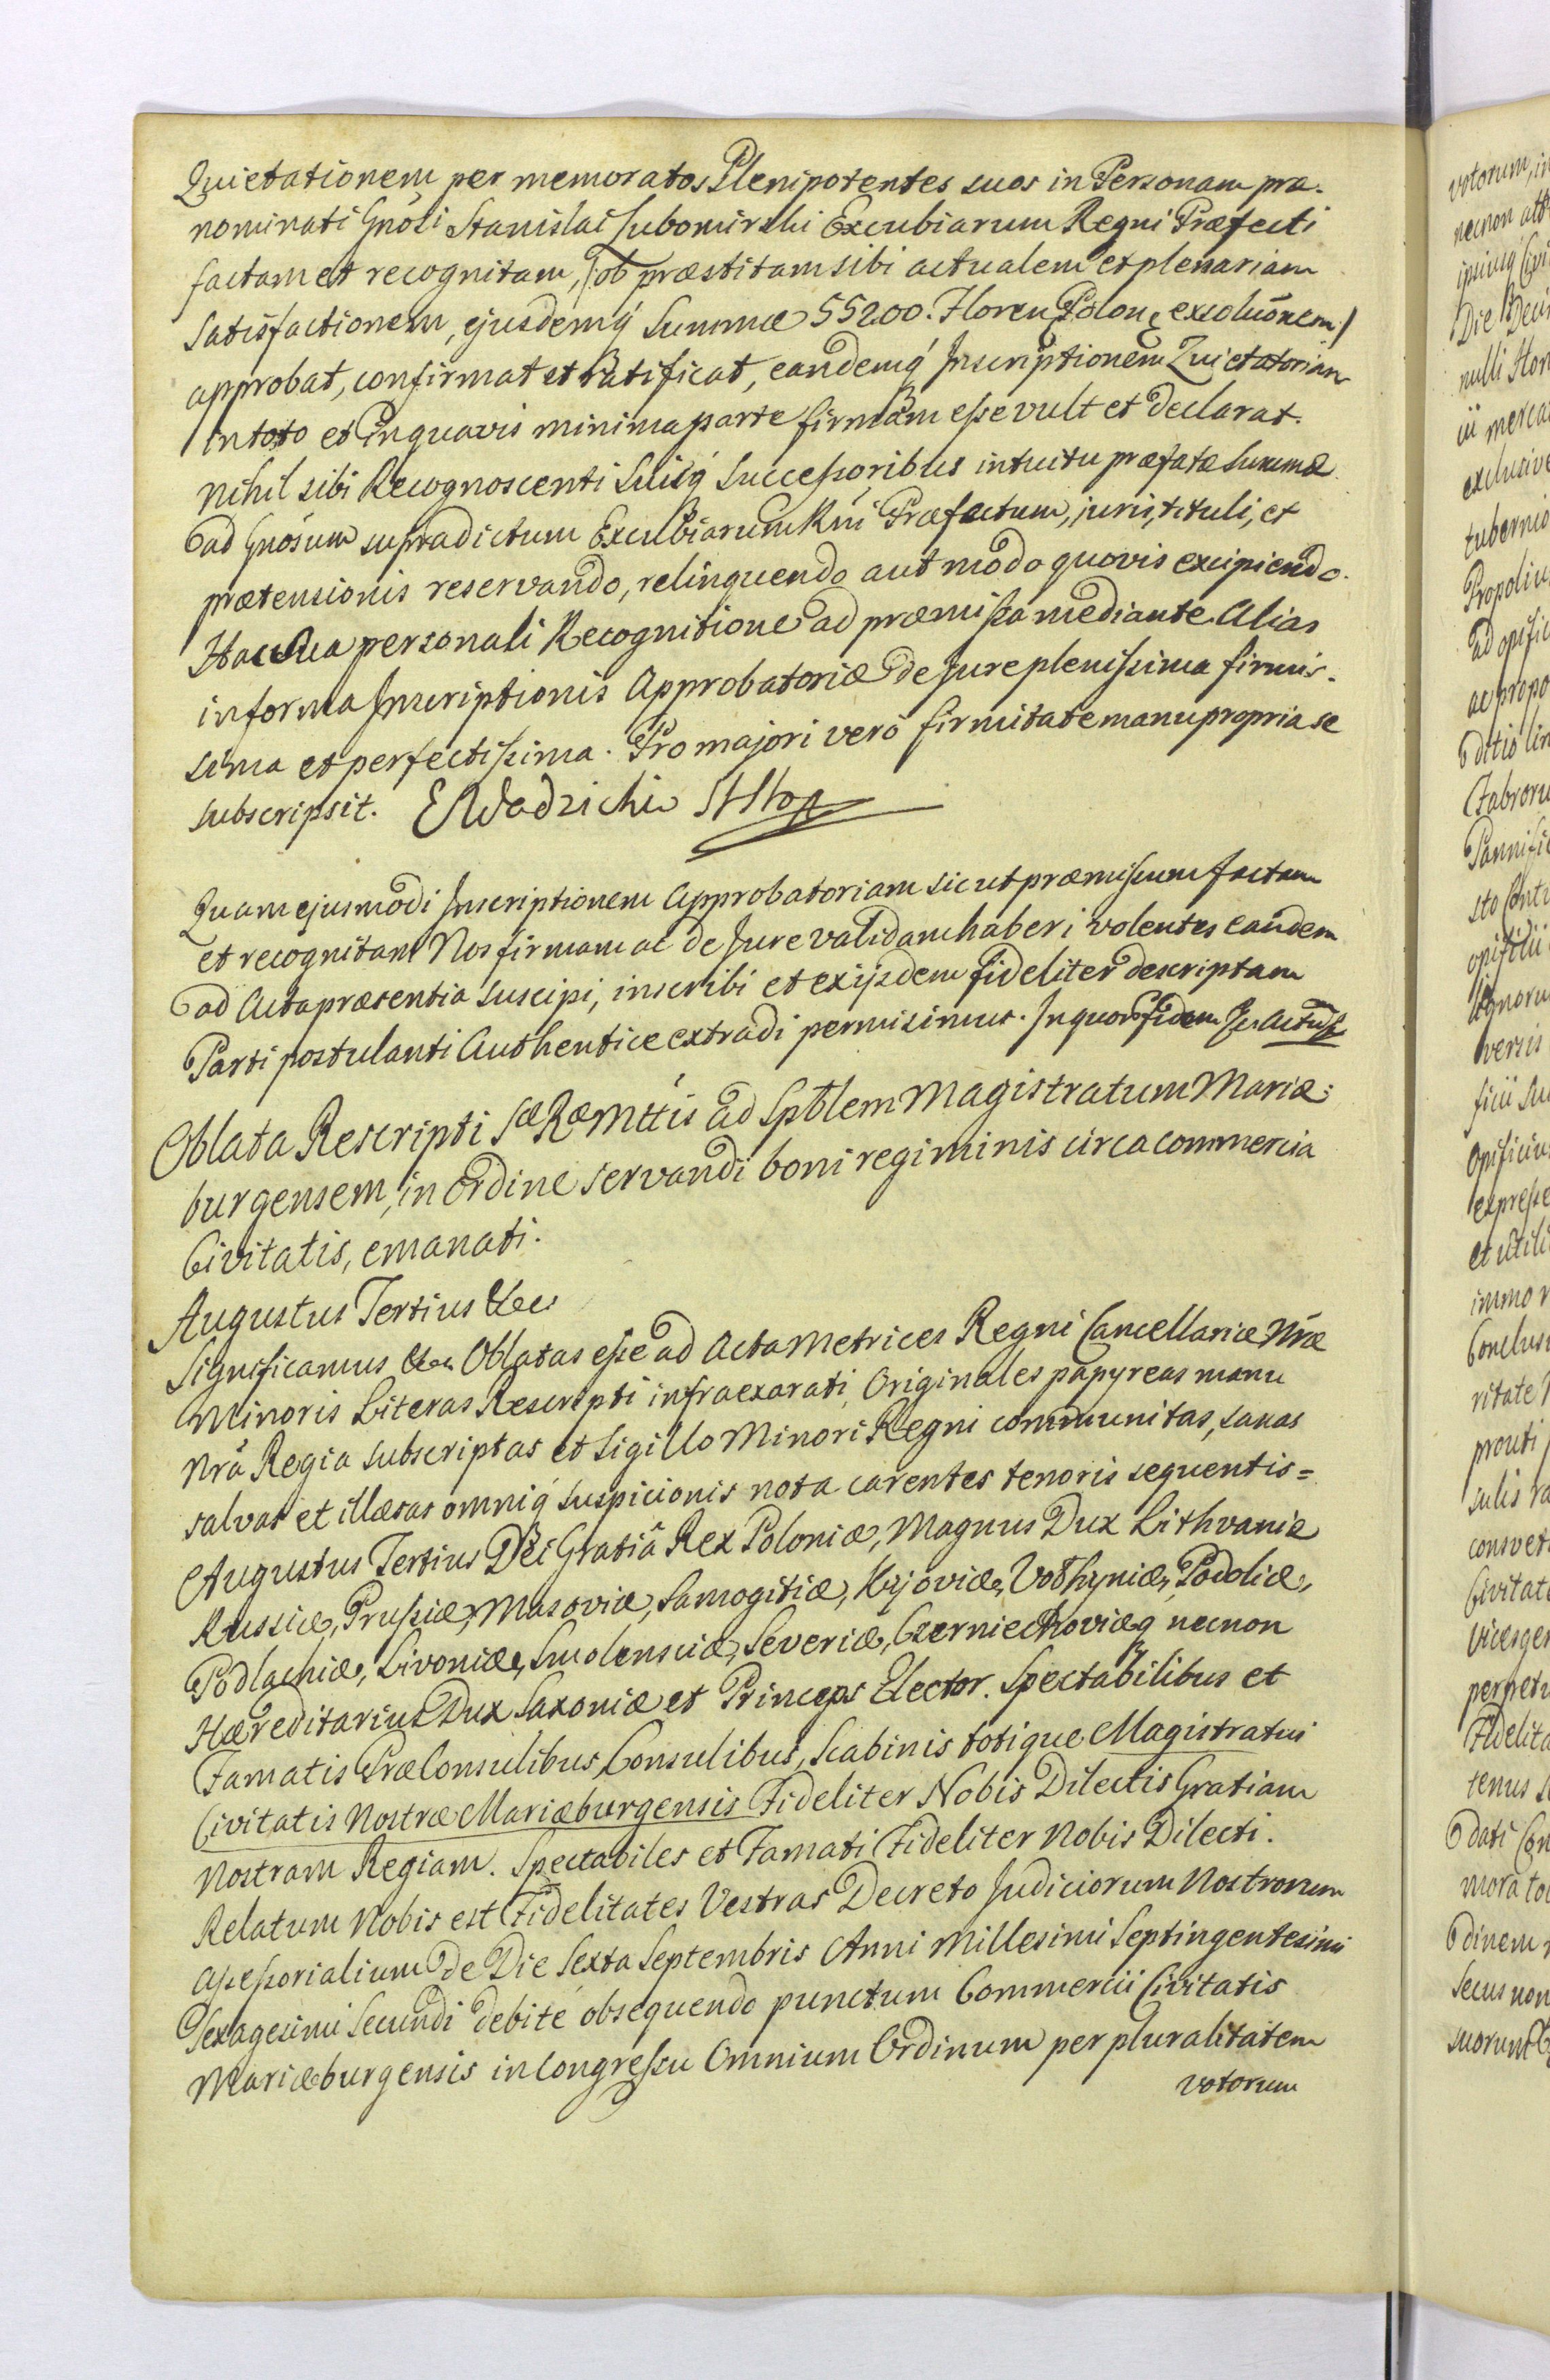 Quietationem per memoratos Plenipotentes suos in Personam præ-
nominati Gnosi Stanislai Lubomirski Excubiarum Regni Præfecti
factam et recognitam, /:ob præstitam sibi actualem et plenariam
satisfactionem, ejusdemq́ Summæ 55200. Floren Polon exolučnem:/
approbat, confirmat et ratificat, eandemq́ Inscriptionem Quietatoriam
in toto et in quavis minima parte firmam esse vult et declarat.
nihil sibi Recognoscenti Suisq́ Successoribus intuitu præfatæ Summæ
ad Gnosum supradictum Excubiarum Rni Præfectum, juris, tituli, et
prætensionis reservando, relinquendo aut modo quovis excipiendo.
Hac sua personali Recognitione ad præmissa mediante. Alias
in forma Inscriptionis Approbatoriæ de Jure plenissima firmis-
sima et perfectissima. Pro majori vero firmitate manu propria se
subscripsit. E Wodzicki
Quam ejusmodi Inscriptionem Approbatoriam sicut præmissum factam
et recognitam Nos firmam ac de Jure validam haberi volentes eandem
ad Acta præsentia suscipi, inscribi et ex ijsdem fideliter descriptam
Parti postulanti Authentice extradi permisimus. In quor fidem
Oblata Rescripti Sæ Ræ Mttis ad Spblem Magistratum Mariæ-
burgensem, in ordine servandi boni regiminis circa commercia
Civitatis, emanati.
Augustus Tertius &c
Significamus &c. Oblatas esse ad Acta Metrices Regni Cancellariæ Nræ
Minoris Literas Rescripti infraexarati, Originales papyreas manu
Nrâ Regia subscriptas et Sigillo Minori Regni communitas, sanas
salvas et illæsas omniq́ suspicionis nota carentes tenoris sequentis=
Augustus Tertius Dei Gratiâ Rex Poloniæ, Magnus Dux Lithvaniæ
Russiæ, Prussiæ, Masoviæ, Samogitiæ, Kijoviæ, Volhyniæ, Podoliæ,
Podlachiæ, Livoniæ, Smolensciæ, Severiæ, Czerniechoviæq necnon
Hæreditarius Dux Saxoniæ et Princeps Elector. Spectabilibus et
Famatis PræConsulibus, Consulibus, Scabinis totique Magistratui
Civitatis Nostræ Mariæburgensis Fideliter Nobis Dilectis Gratiam
Nostram Regiam. Spectabiles et Famati Fideliter Nobis Dilecti.
Relatum Nobis est Fidelitates Vestras Decreto Judiciorum Nostrorum
Assessorialium de Die Sexta Septembris Anni Millesimi Septingentesimi
Sexagesimi Secundi debite obsequendo punctum Commercii Civitatis
Mariæburgensis in Congressu Omnium Ordinum per pluralitatem
votorum